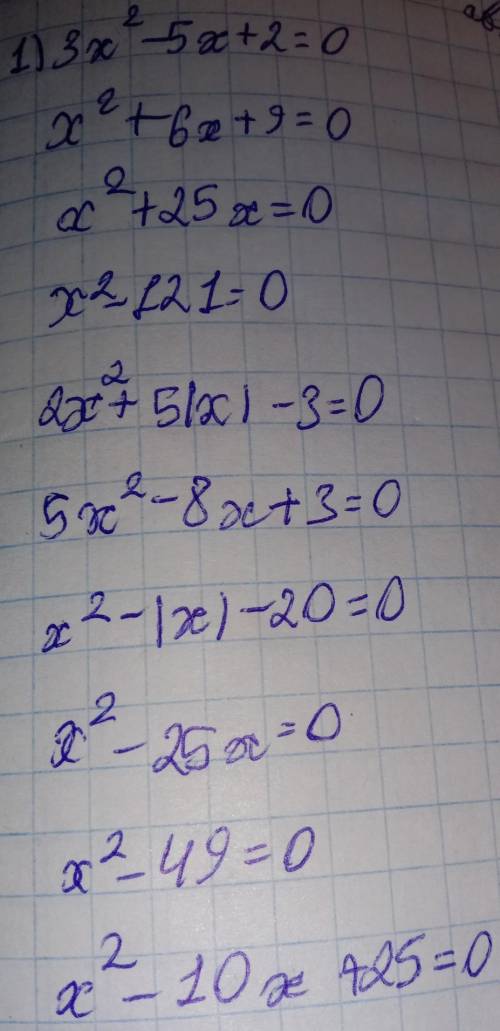 1) 3x² - 5x + 2 = 0
x² + 6x + 9 = 0
x² + 25x = 0
x² - 121 = 0
2x² + 5|x| - 3 = 0
5x² - 8x + 3 = 0
x² - |x| - 20 = 0
x² - 25x = 0
x² - 49 = 0
x² - 10x + 25 = 0